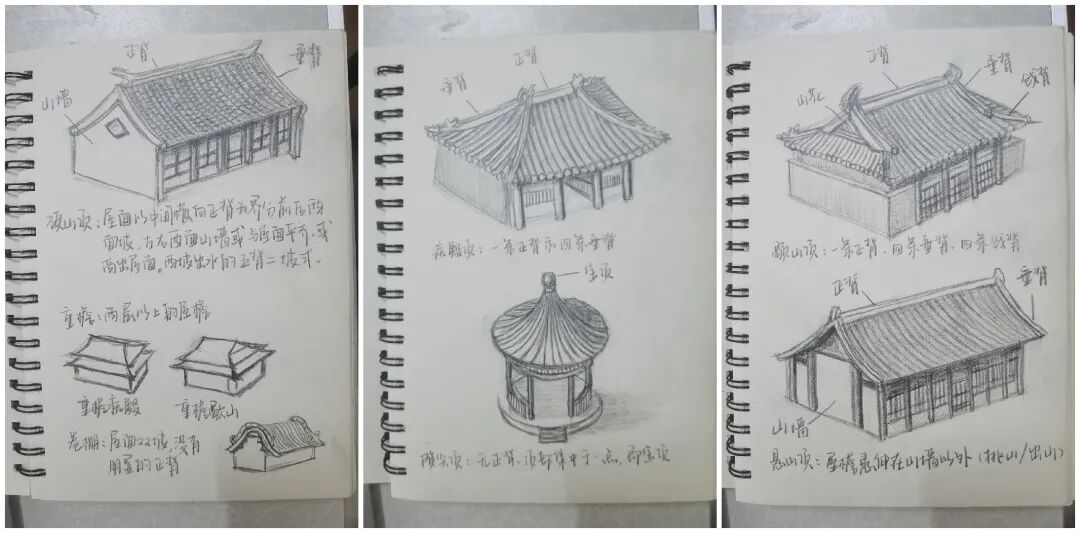 正背
垂背
山墙
硬山顶：屋面以中间横向正背为界分前后两
面坡，左右两面山墙或与屋面平齐，或
高出屋面。两坡出水的五背二坡式.
重檐：两层以上的屋檐
重檐庑殿
重檐歇山
卷棚：屋面双坡，没有
明显的正背
正背
垂背
庑殿顶：一条正背和四条垂背
宝顶
攒尖顶：无正背，顶部集中于一点，即宝顶
正背
垂背
戗背
山花
歇山顶：一条正背、四条垂背、四条戗背
正背
垂背
山墙
悬山顶：屋檐悬伸在山墙以外（挑山/出山）